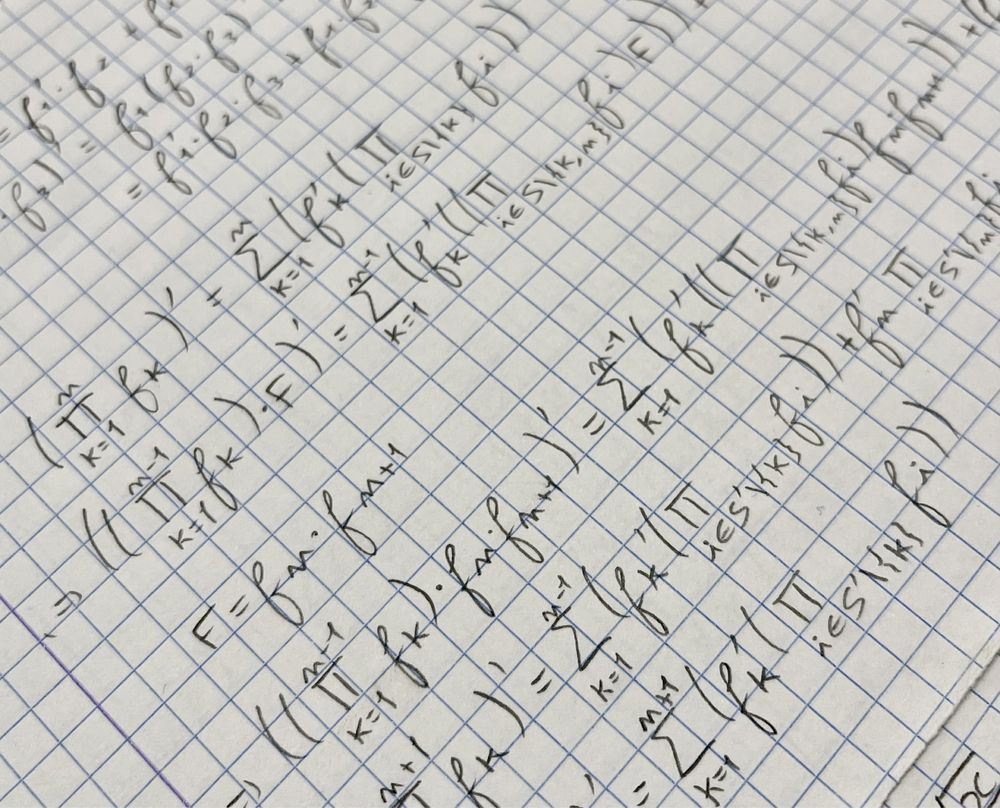 = f₁'·f₂ + f₁
·f₃)' = f₁'(f₂·f₃)
= f₁'·f₂·f₃ + f₁·f₂
(∏_{k=1}^{n} f_k)' = ∑_{k=1}^{n} (f_k' (∏_{i∈S\{k}} f_i))
=> ((∏_{k=1}^{n-1} f_k)·F)' = ∑_{k=1}^{n-1} (f_k' ((∏_{i∈S\{k,n}} f_i) F)) +
F = f_n · f_{n+1}
=> ((∏_{k=1}^{n-1} f_k)·f_n·f_{n+1})' = ∑_{k=1}^{n-1} (f_k' ((∏_{i∈S\{k,n}} f_i) f_n f_{n+1})) +
∏_{k=1}^{n+1} f_k)' = ∑_{k=1}^{n-1} (f_k' (∏_{i∈S'\{k}} f_i)) + f_n' ∏_{i∈S'\{n}} f_i
= ∑_{k=1}^{n+1} (f_k' (∏_{i∈S'\{k}} f_i))